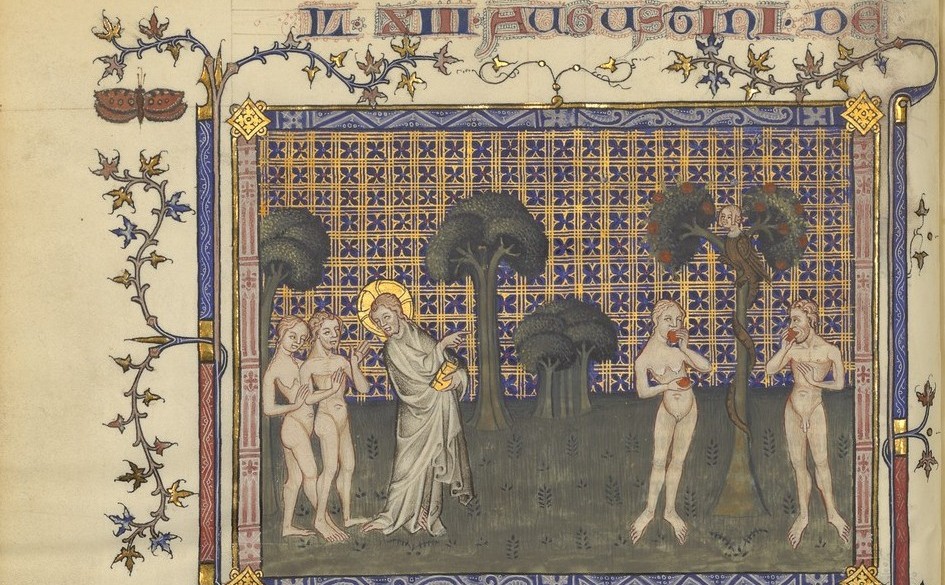 L · XIII AUGUSTINI · DE